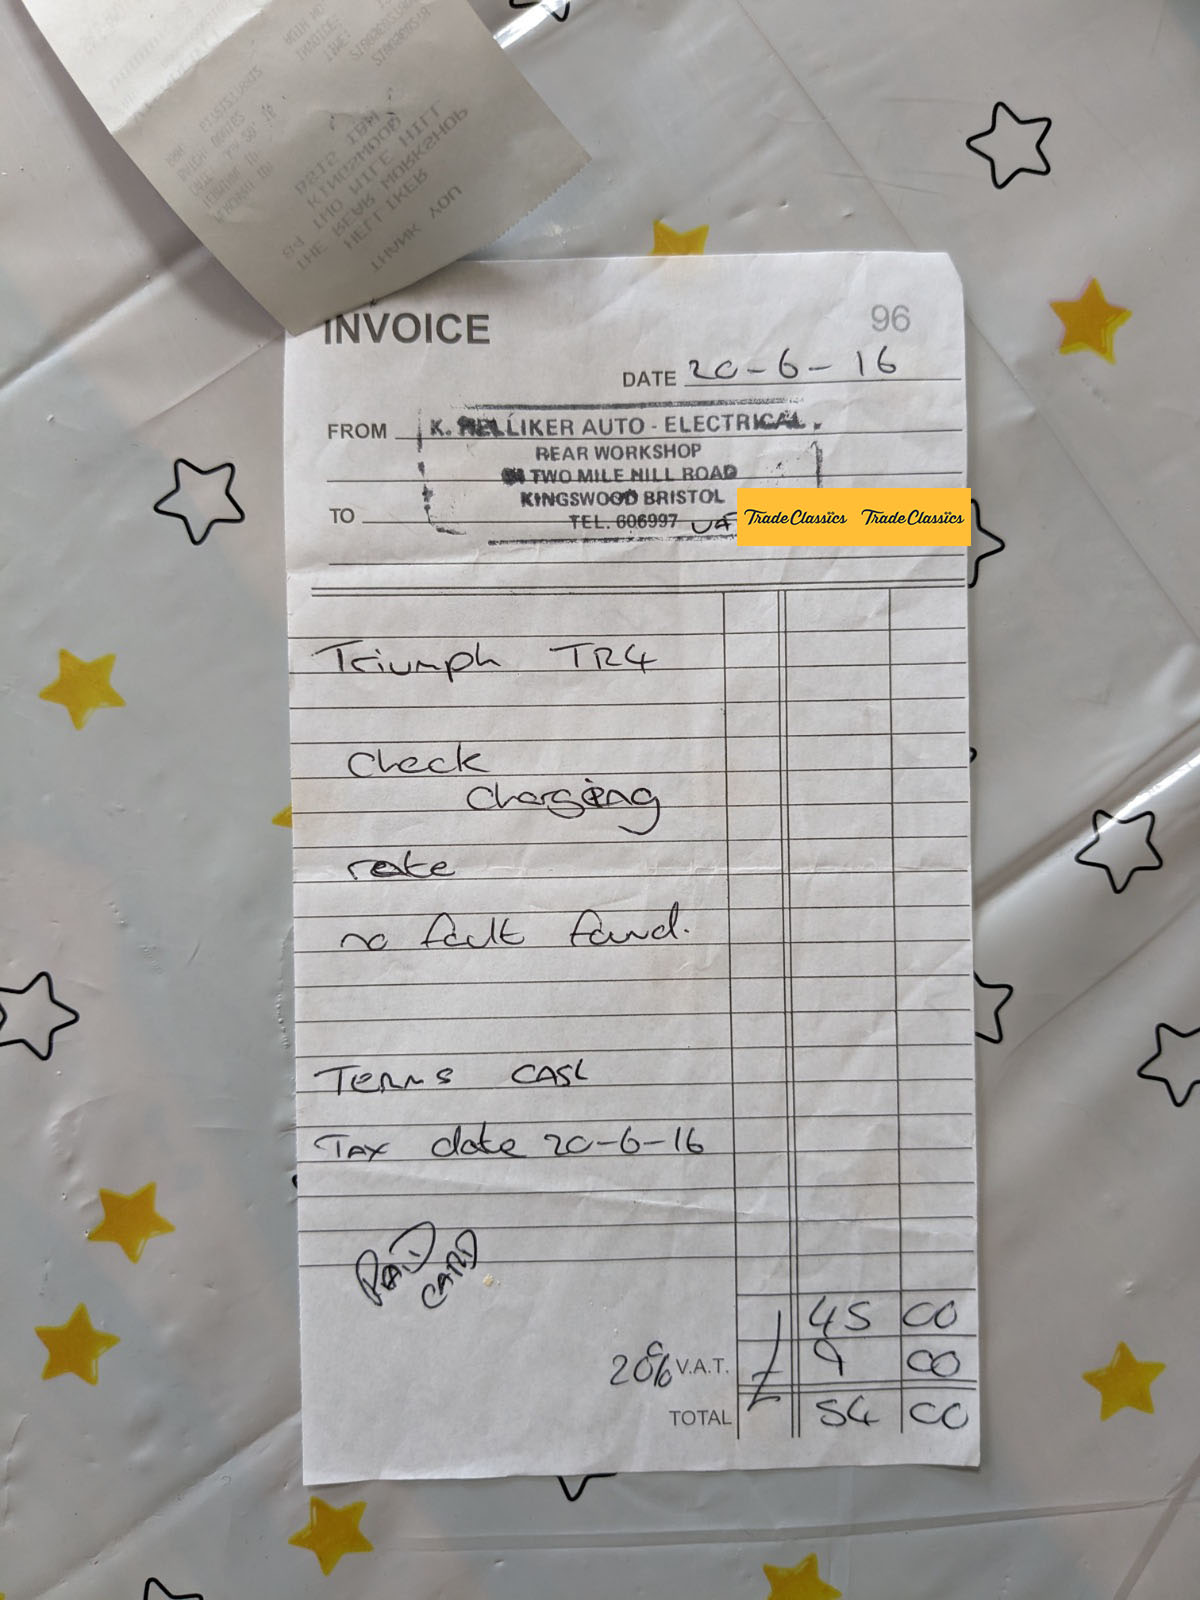 THANK YOU
HELLIKER
THE REAR WORKSHOP
TWO MILE HILL
KINGSWOOD
INVOICE 96
DATE 20-6-16
FROM K. HELLIKER AUTO - ELECTRICAL.
REAR WORKSHOP
TWO MILE HILL ROAD
KINGSWOOD BRISTOL
TO TEL. 606997
TradeClassics TradeClassics
Triumph TR4
check
charging
rate
no fault found.
Terms CASh
TAX date 20-6-16
PAID
CARD
£ 45 00
20% V.A.T. 9 00
TOTAL 54 00